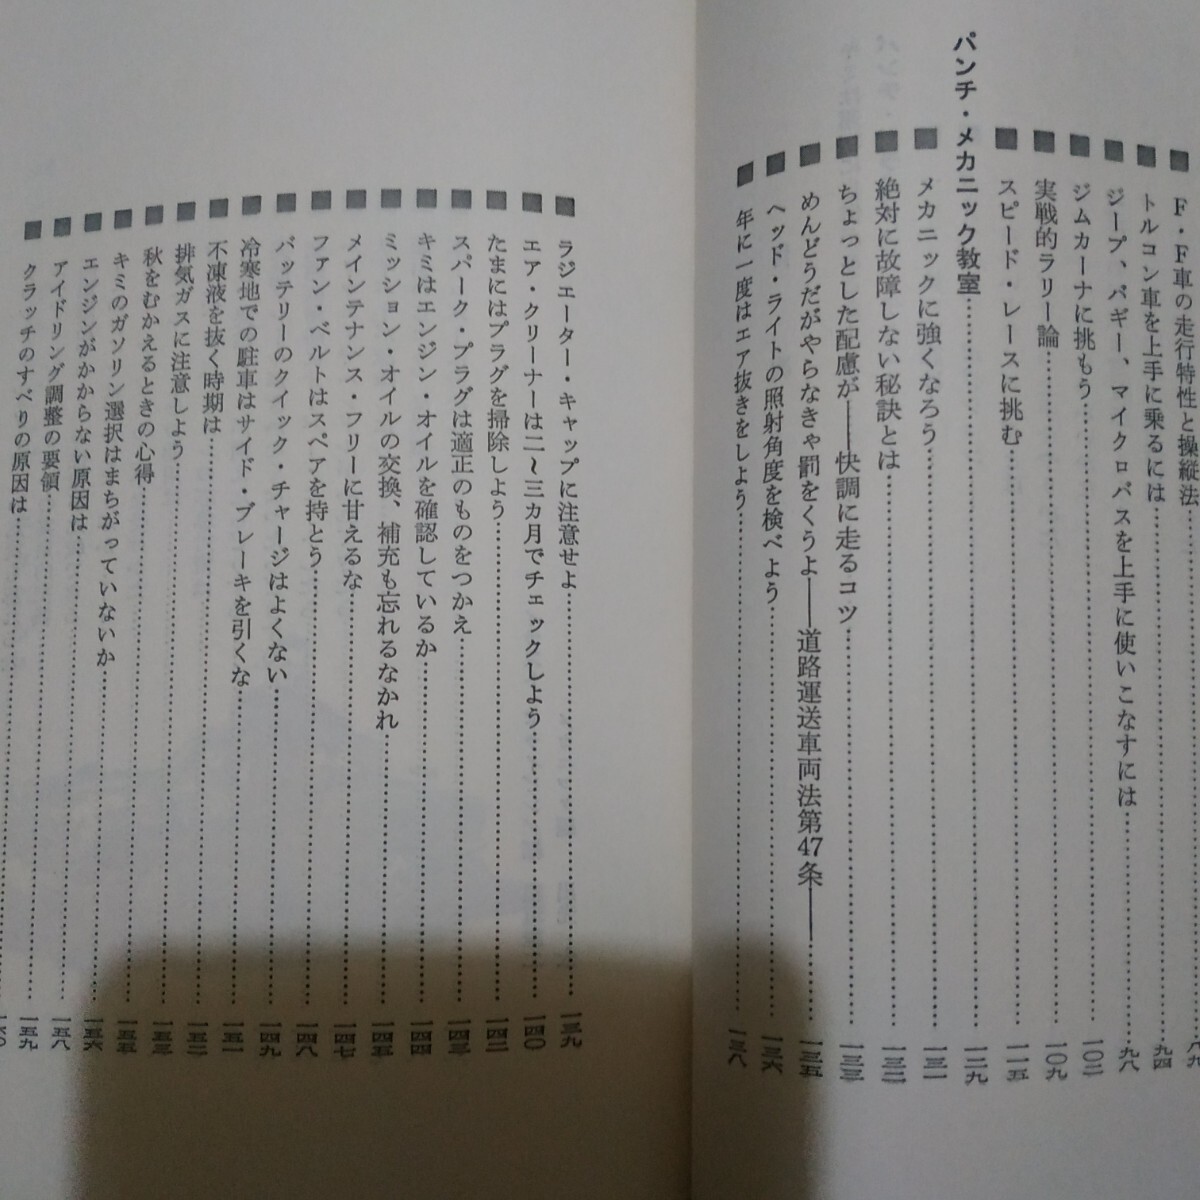 ■ F・F車の走行特性と操縦法……八九
■ トルコン車を上手に乗るには……九四
■ ジープ、バギー、マイクロバスを上手に使いこなすには……九八
■ ジムカーナに挑もう……一〇二
■ 実戦的ラリー論……一〇九
■ スピード・レースに挑む……一一五
パンチ・メカニック教室……一二九
■ メカニックに強くなろう……一三一
■ 絶対に故障しない秘訣とは……一三二
■ ちょっとした配慮が――快調に走るコツ……一三三
■ めんどうだがやらなきゃ罰をくうよ――道路運送車両法第47条――……一三五
■ ヘッド・ライトの照射角度を検べよう……一三六
■ 年に一度はエア抜きをしよう……一三八
■ ラジエーター・キャップに注意せよ……一三九
■ エア・クリーナーは二〜三カ月でチェックしよう……一四〇
■ たまにはプラグを掃除しよう……一四二
■ スパーク・プラグは適正のものをつかえ……一四三
■ キミはエンジン・オイルを確認しているか……一四四
■ ミッション・オイルの交換、補充も忘れるなかれ……一四五
■ メインテナンス・フリーに甘えるな……一四七
■ ファン・ベルトはスペアを持とう……一四八
■ バッテリーのクイック・チャージはよくない……一四九
■ 冷寒地での駐車はサイド・ブレーキを引くな……一五一
■ 不凍液を抜く時期は……一五二
■ 排気ガスに注意しよう……一五三
■ 秋をむかえるときの心得……一五五
■ キミのガソリン選択はまちがっていないか……一五六
■ エンジンがかからない原因は……一五八
■ アイドリング調整の要領……一五九
■ クラッチのすべりの原因は……一六〇